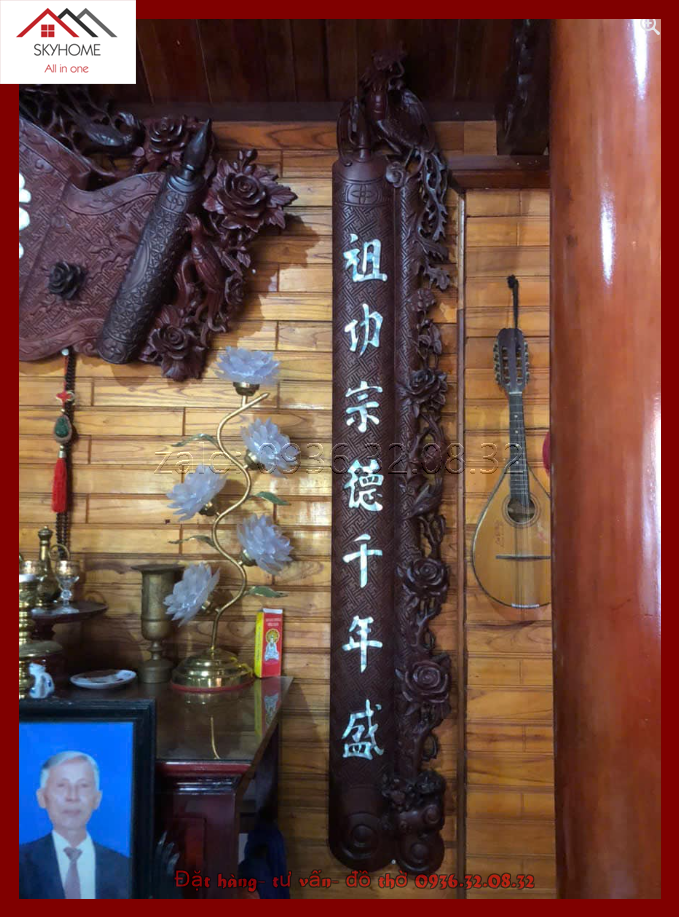 SKYHOME
All in one
祖功宗德千年盛
zalo: 0936.32.08.32
Đặt hàng- tư vấn- đồ thờ 0936.32.08.32